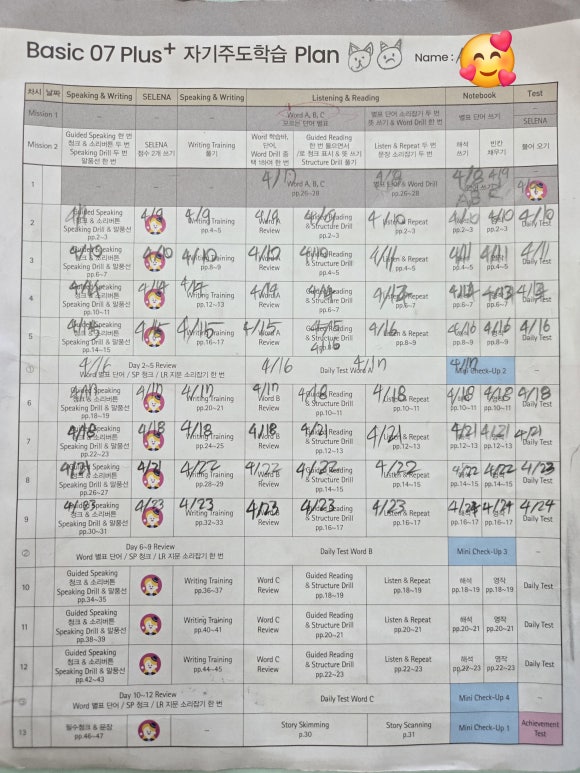 Basic 07 Plus+ 자기주도학습 Plan
Name:
차시 날짜 Speaking & Writing SELENA Speaking & Writing Listening & Reading Notebook Test
Mission 1 – – – Word A, B, C 별표 단어 소리잡기 두 번 별표 단어 쓰기 –
모르는 단어 별표 뜻 쓰기 & Word Drill 한 번 SELENA
Mission 2 Guided Speaking 한 번 SELENA Writing Training Word 학습바, Guided Reading Listen & Repeat 두 번 해석 빈칸 풀어 오기
청크 & 소리버튼 두 번 점수 2개 쓰기 풀기 단어, 한 번 들으면서 문장 소리잡기 두 번 쓰기 채우기
Speaking Drill 두 번 Word Drill 중 /로 청크 표시 & 뜻 쓰기
말풍선 한 번 택 1하여 한 번 Structure Drill 풀기
1 – – – 4/17 Word A, B, C 4/8 Word Drill 4/8 4/9
pp.26~28 pp.26~28
2 Guided Speaking 4/9 4/9 Writing Training 4/9 Word A 4/10 Guided Reading 4/10 Listen & Repeat 4/10 4/10 4/10
청크 & 소리버튼 Review & Structure Drill pp.2~3 pp.2~3 pp.2~3 Daily Test
Speaking Drill & 말풍선 pp.4~5 pp.2~3
pp.2~3
3 4/10 4/10 Writing Training 4/10 Word A 4/10 Guided Reading 4/11 Listen & Repeat 4/11 4/11 4/11
Speaking Drill & 말풍선 pp.8~9 Review & Structure Drill pp.4~5 pp.4~5 pp.4~5 Daily Test
pp.6~7 pp.4~5
4 4/14 4/14 Writing Training 4/14 Word A Guided Reading 4/13 Listen & Repeat 4/14 4/13
Speaking Drill & 말풍선 pp.12~13 Review & Structure Drill pp.6~7 pp.6~7 pp.6~7 Daily Test
pp.10~11 pp.6~7
5 4/15 Writing Training 4/15 Word A 4/15 Guided Reading 4/16 Listen & Repeat 4/16 4/16 4/16
Speaking Drill & 말풍선 pp.16~17 Review & Structure Drill 4/16 pp.8~9 pp.8~9 pp.8~9 Daily Test
pp.14~15
① 4/16 Day 2~5 Review 4/16 Daily Test Word A 4/17 4/17 Mini Check-Up 2 –
Word 별표 단어 / SP 청크 / LR 지문 소리잡기 한 번
6 4/17 4/17 Writing Training 4/17 Word B 4/18 Guided Reading 4/18 Listen & Repeat 4/18 4/18 4/18
Speaking Drill & 말풍선 pp.20~21 Review & Structure Drill pp.10~11 pp.10~11 pp.10~11 Daily Test
pp.18~19 pp.10~11
7 4/18 4/18 Writing Training 4/18 Word B 4/21 Guided Reading 4/21 Listen & Repeat 4/21 4/21 4/21
Speaking Drill & 말풍선 pp.24~25 Review & Structure Drill pp.12~13 pp.12~13 pp.12~13 Daily Test
pp.22~23 pp.12~13
8 4/21 4/21 Writing Training 4/22 Word B 4/22 Guided Reading 4/22 Listen & Repeat 4/22 4/22 4/22 4/23
Speaking Drill & 말풍선 pp.28~29 Review & Structure Drill pp.14~15 pp.14~15 pp.14~15 Daily Test
pp.26~27 pp.14~15
9 4/23 4/23 Writing Training 4/23 Word B 4/23 Guided Reading 4/23 Listen & Repeat 4/23 4/24 4/24 4/24
Speaking Drill & 말풍선 pp.32~33 Review & Structure Drill pp.16~17 pp.16~17 pp.16~17 Daily Test
pp.30~31 pp.16~17
② Day 6~9 Review Daily Test Word B Mini Check-Up 3 –
Word 별표 단어 / SP 청크 / LR 지문 소리잡기 한 번
10 Guided Speaking Writing Training Word C Guided Reading Listen & Repeat 해석 영작 Daily Test
청크 & 소리버튼 pp.36~37 Review & Structure Drill pp.18~19 pp.18~19 pp.18~19
Speaking Drill & 말풍선 pp.18~19
pp.34~35
11 Guided Speaking Writing Training Word C Guided Reading Listen & Repeat 해석 영작 Daily Test
청크 & 소리버튼 pp.40~41 Review & Structure Drill pp.20~21 pp.20~21 pp.20~21
Speaking Drill & 말풍선 pp.20~21
pp.38~39
12 Guided Speaking Writing Training Word C Guided Reading Listen & Repeat 해석 영작 Daily Test
청크 & 소리버튼 pp.44~45 Review & Structure Drill pp.22~23 pp.22~23 pp.22~23
Speaking Drill & 말풍선 pp.22~23
pp.42~43
③ Day 10~12 Review Daily Test Word C Mini Check-Up 4 –
Word 별표 단어 / SP 청크 / LR 지문 소리잡기 한 번
13 필수청크 & 문장 – Story Skimming Story Scanning Mini Check-Up 1 Achievement
pp.46~47 p.30 p.31 Test